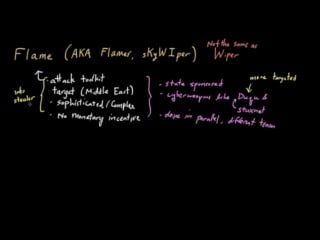 Flame (AKA Flamer, sKyWIper)
Not the same as
Wiper
info
stealer
attack toolkit
target (Middle East)
- sophisticated/Complex
- No monetary incentive
- state sponsored
- cyberweapons like Duqu &
stuxnet
- devpe in parallel, different team
more targeted